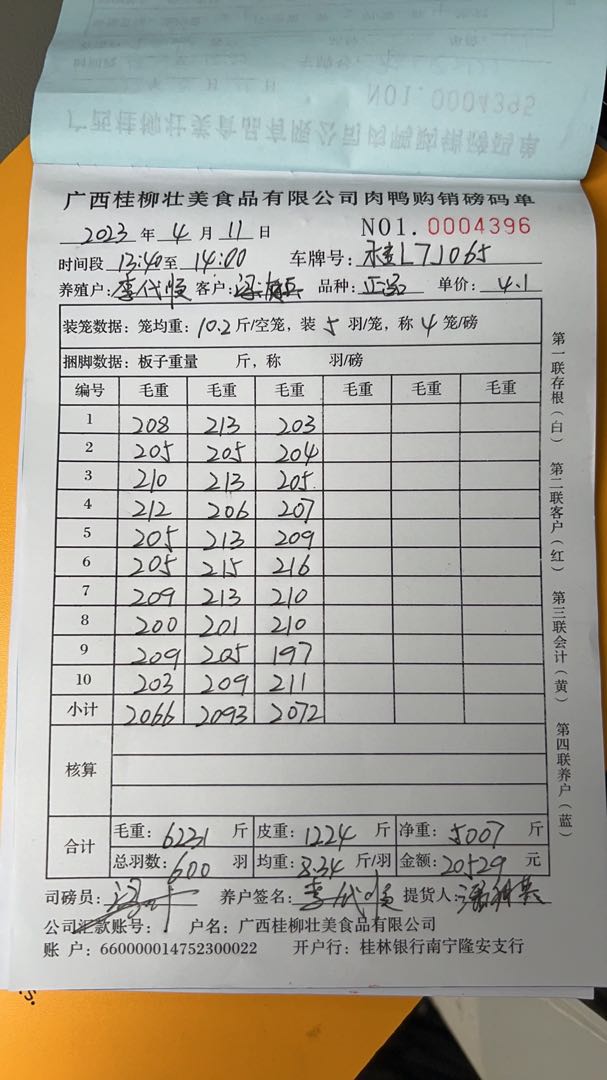 NO1.0004395
广西桂柳壮美食品有限公司肉鸭购销磅码单
广西桂柳壮美食品有限公司肉鸭购销磅码单
2023 年 4 月 11 日 NO1. 0004396
时间段 13:40至 14:00 车牌号: L7J065
养殖户: 李代顺 客户: 品种: 单价: 4.1
装笼数据: 笼均重: 10.2 斤/空笼, 装 5 羽/笼, 称 4 笼/磅
捆脚数据: 板子重量 斤, 称 羽/磅
编号 毛重 毛重 毛重 毛重 毛重 毛重
1 208 213 203
2 205 205 204
3 210 213 205
4 212 206 207
5 205 213 209
6 205 215 216
7 209 213 210
8 200 201 210
9 209 205 197
10 203 209 211
小计 2066 2093 2072
核算
合计 毛重: 6231 斤 皮重: 1224 斤 净重: 5007 斤
总羽数: 600 羽 均重: 8.34 斤/羽 金额: 20529 元
司磅员: 养户签名: 李代顺 提货人:
公司汇款账号: 户名: 广西桂柳壮美食品有限公司
账 户: 660000014752300022 开户行: 桂林银行南宁隆安支行
第一联存根(白)
第二联客户(红)
第三联会计(黄)
第四联养户(蓝)